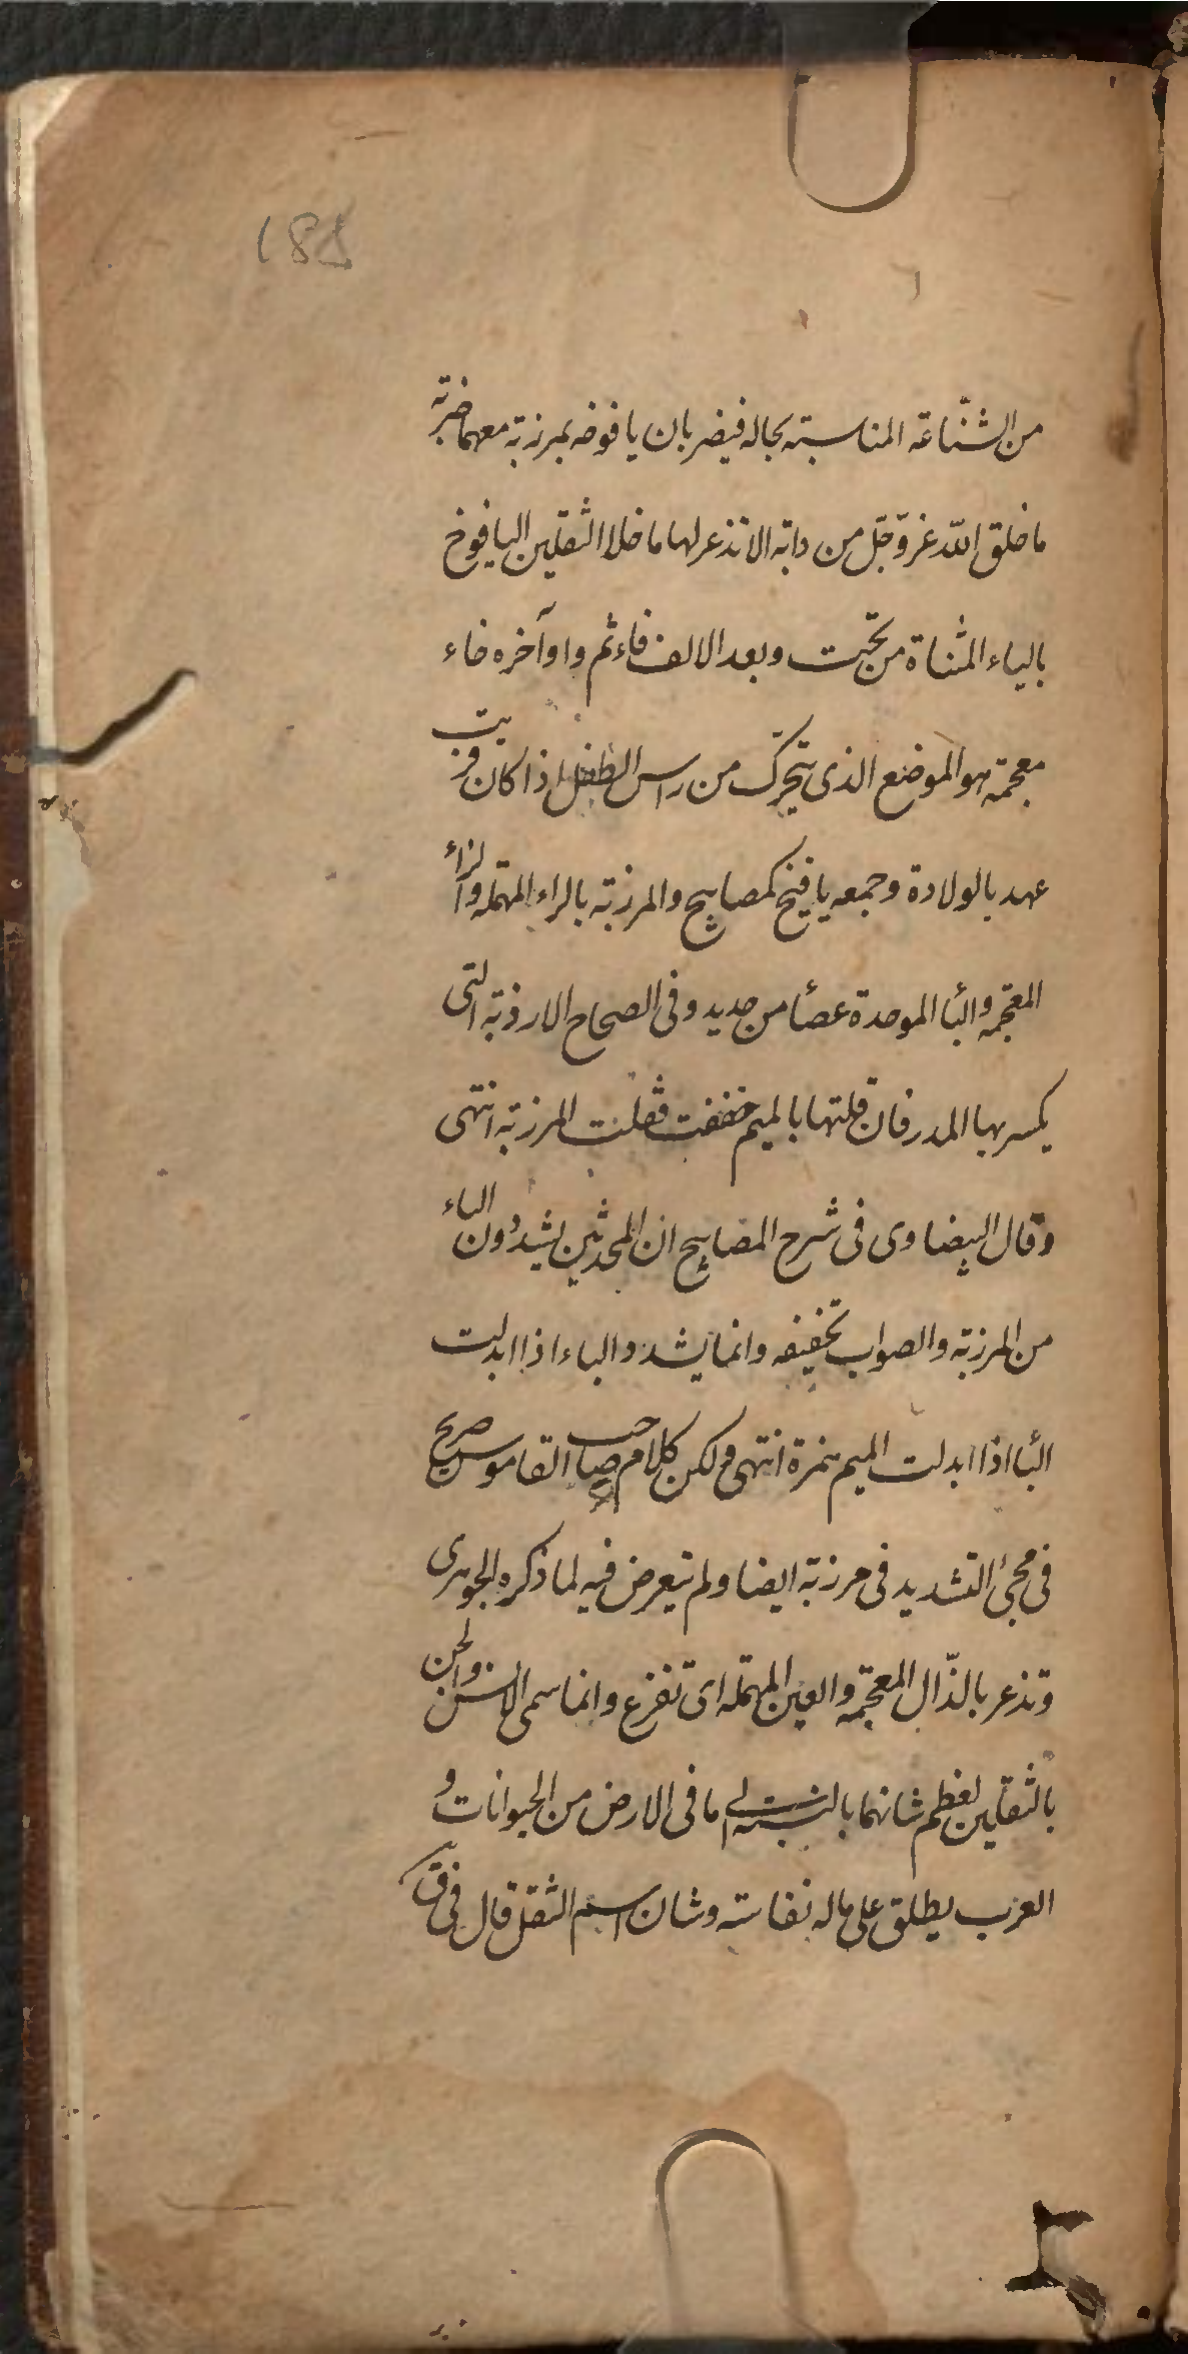 181
من الشناعة المناسبة بحاله فيضربان يافوخه بمرزبة معهما ضربة
ما خلق الله عزّ وجّل من دابة الا تذعر لها ما خلا الثقلين اليافوخ
بالياء المثناة من تحت وبعد الالف فاء ثم واو آخره خاء
معجمة هو الموضع الذى يتحرّك من راس الطفل اذا كان قريب
عهد بالولادة وجمعه يافيخ كمصابيح والمرزبة بالراء المهملة والزاء
المعجمة والبا الموحدة عصا من حديد وفى الصحاح الارزبة التى
يكسر بها المدر فان قلتها بالميم خففت فقلت المرزبة انتهى
وقال البيضاوى فى شرح المصابيح ان المحدثين يشددون الباء
من المرزبة والصواب تخفيفه وانما يشدد الباء اذا ابدلت
البا اذا ابدلت الميم همزة انتهى ولكن كلام صاحب القاموس صريح
فى مجئ التشديد فى مرزبة ايضا ولم يتعرض فيه لما ذكره الجوهرى
وتذعر بالذّال المعجمة والعين المهملة اى تفزع وانما سمى الانس والجن
بالثقلين لعظم شانهما بالنسبة الى ما فى الارض من الحيوانات و
العرب يطلق على ماله نفاسة وشان اسم الثقل قال فى ق